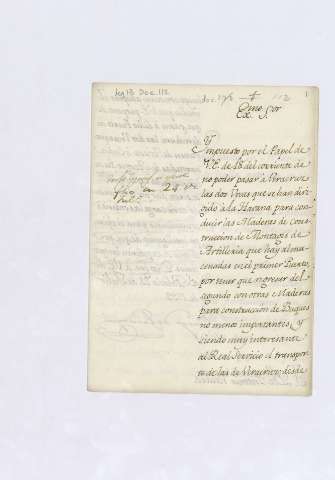 leg 13 Doc. 112
doc. 178
112
1
Exmo. Sor.
Impuesto por el Papel de
V.E. de 18 del corriente de
no poder pasar à Veracruz
las dos Urcas que se han diri-
gido à la Havana para con-
ducir las Maderas de Cons-
truccion de Montages de
Artilleria que hay alma-
cenadas en el primer Puerto,
por tener que regresar del
segundo con otras Maderas
para construccion de Buques
no menos importantes, y
siendo muy interesante
al Real Servicio el transpor-
te de las de Veracruz, desde